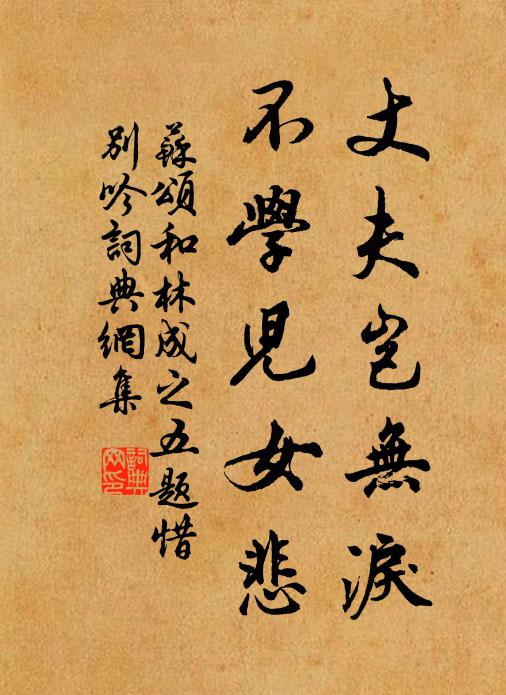 丈夫豈無淚
不學兒女悲
蘇頌和林成之五題惜
別吟詞典網集
詞典
網印